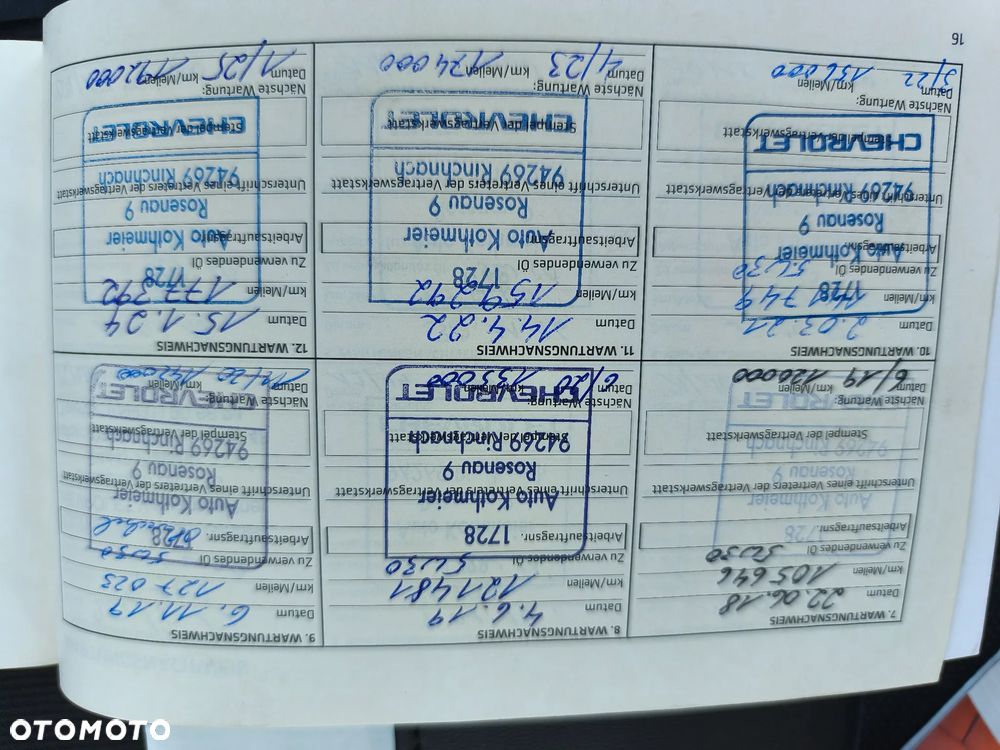 7. WARTUNGSNACHWEIS
Datum 22.06.18
km/Meilen 105 646
Zu verwendendes Öl 5W30
Arbeitsauftragsnr.
1728
Auto Kothmeier
Unterschrift eines Vertreters der Vertragswerkstatt
Rosenau 9
94269 Rinchnach
Stempel der Vertragswerkstatt
CHEVROLET
Nächste Wartung:
Datum 6/19 km/Meilen 120000
8. WARTUNGSNACHWEIS
Datum 4.6.19
km/Meilen 121 481
Zu verwendendes Öl 5W30
Arbeitsauftragsnr.
1728
Auto Kothmeier
Unterschrift eines Vertreters der Vertragswerkstatt
Rosenau 9
94269 Rinchnach
Stempel der Vertragswerkstatt
CHEVROLET
Nächste Wartung:
Datum 6/20 km/Meilen
9. WARTUNGSNACHWEIS
Datum 6.11.19
km/Meilen 127 023
Zu verwendendes Öl 5W30
Arbeitsauftragsnr.
1728
Auto Kothmeier
Unterschrift eines Vertreters der Vertragswerkstatt
Rosenau 9
94269 Rinchnach
Stempel der Vertragswerkstatt
CHEVROLET
Nächste Wartung:
Datum 11/20 km/Meilen 142000
10. WARTUNGSNACHWEIS
Datum 2.03.21
km/Meilen 141 749
1728
Zu verwendendes Öl 5W30
Arbeitsauftragsnr.
Auto Kothmeier
Rosenau 9
Unterschrift eines Vertreters der Vertragswerkstatt
94269 Rinchnach
Stempel der Vertragswerkstatt
CHEVROLET
Nächste Wartung:
Datum 3/22 km/Meilen 156000
11. WARTUNGSNACHWEIS
Datum 14.4.22
km/Meilen 159 292
1728
Zu verwendendes Öl
Arbeitsauftragsnr.
Auto Kothmeier
Rosenau 9
Unterschrift eines Vertreters der Vertragswerkstatt
94269 Rinchnach
Stempel der Vertragswerkstatt
CHEVROLET
Nächste Wartung:
Datum 4/23 km/Meilen 174000
12. WARTUNGSNACHWEIS
Datum 15.1.24
km/Meilen 177 392
1728
Zu verwendendes Öl
Arbeitsauftragsnr.
Auto Kothmeier
Rosenau 9
Unterschrift eines Vertreters der Vertragswerkstatt
94269 Rinchnach
Stempel der Vertragswerkstatt
CHEVROLET
Nächste Wartung:
Datum 1/25 km/Meilen 192000
16
OTOMOTO